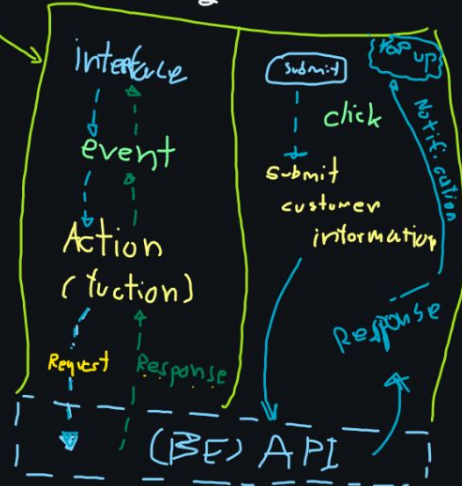 interface
event
Action
(fuction)
Request
Response
submit
click
submit
customer
information
Pop up
Notification
Response
(BE) API